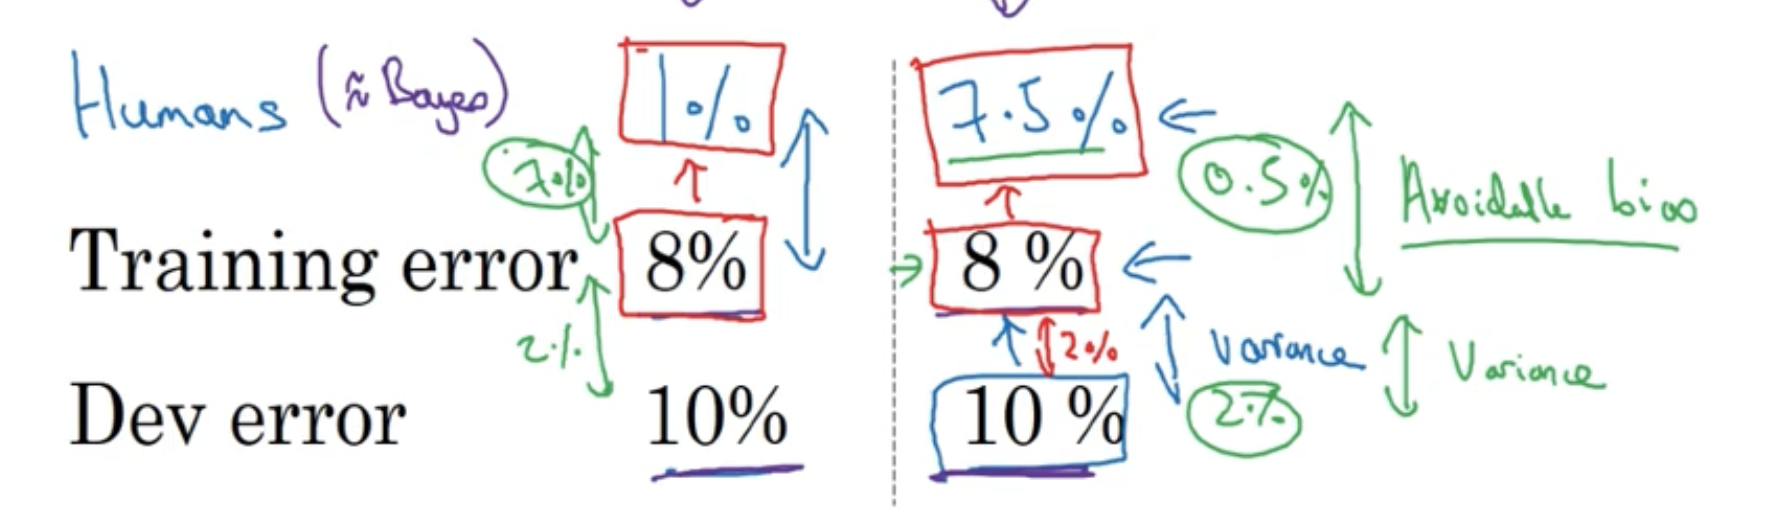 Humans (≈ Bayes) 1% 7.5%
7% 0.5% Avoidable bias
Training error 8% 8 %
2% 2% Variance Variance
Dev error 10% 10 % 2%